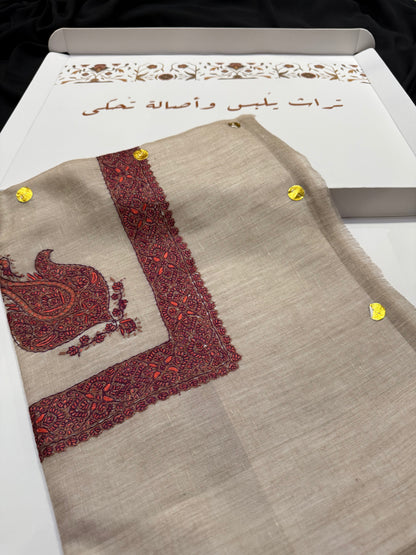 تراث يلبس وأصالة تُحكى